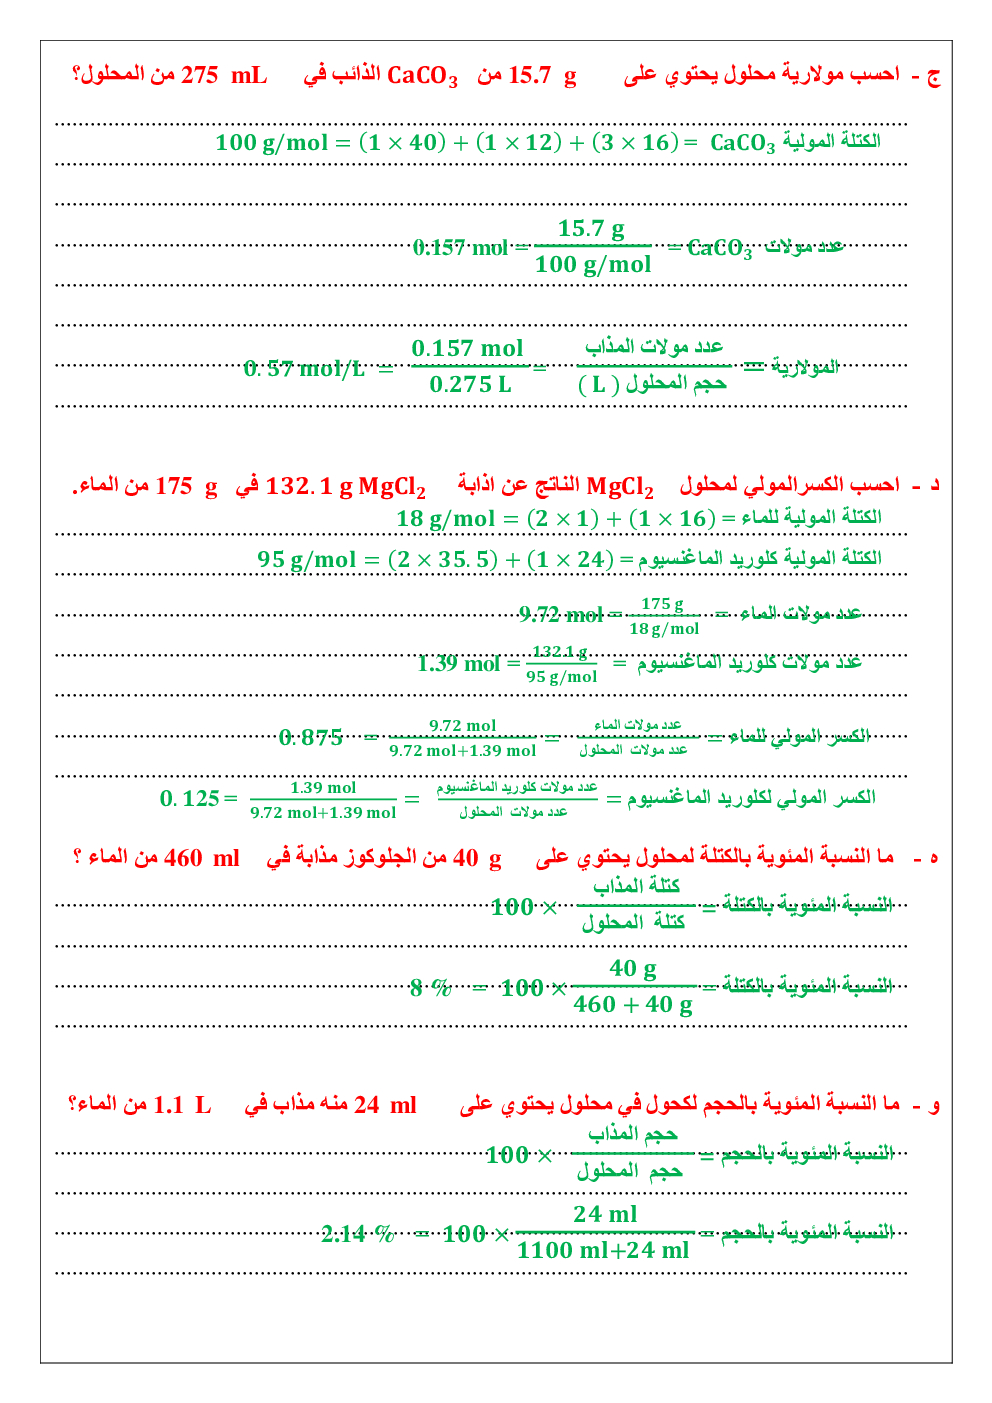 ج - احسب مولارية محلول يحتوي على 15.7 g من CaCO₃ الذائب في 275 mL من المحلول؟
الكتلة المولية CaCO₃ = (3 × 16) + (1 × 12) + (1 × 40) = 100 g/mol
عدد مولات CaCO₃ = 15.7 g / 100 g/mol = 0.157 mol
المولارية = عدد مولات المذاب / حجم المحلول ( L ) = 0.157 mol / 0.275 L = 0.57 mol/L
د - احسب الكسرالمولي لمحلول MgCl₂ الناتج عن اذابة 132.1 g MgCl₂ في 175 g من الماء.
الكتلة المولية للماء = (1 × 16) + (2 × 1) = 18 g/mol
الكتلة المولية كلوريد الماغنسيوم = (1 × 24) + (2 × 35.5) = 95 g/mol
عدد مولات الماء = 175 g / 18 g/mol = 9.72 mol
عدد مولات كلوريد الماغنسيوم = 132.1 g / 95 g/mol = 1.39 mol
الكسر المولي للماء = عدد مولات الماء / عدد مولات المحلول = 9.72 mol / 9.72 mol+1.39 mol = 0.875
الكسر المولي لكلوريد الماغنسيوم = عدد مولات كلوريد الماغنسيوم / عدد مولات المحلول = 1.39 mol / 9.72 mol+1.39 mol = 0.125
ه - ما النسبة المئوية بالكتلة لمحلول يحتوي على 40 g من الجلوكوز مذابة في 460 ml من الماء ؟
النسبة المئوية بالكتلة = كتلة المذاب / كتلة المحلول × 100
النسبة المئوية بالكتلة = 40 g / 460 + 40 g × 100 = 8 %
و - ما النسبة المئوية بالحجم لكحول في محلول يحتوي على 24 ml منه مذاب في 1.1 L من الماء؟
النسبة المئوية بالحجم = حجم المذاب / حجم المحلول × 100
النسبة المئوية بالحجم = 24 ml / 1100 ml+24 ml × 100 = 2.14 %